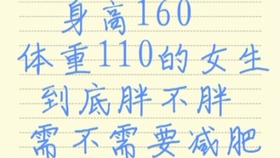 身高160
体重110的女生
到底胖不胖
需不需要减肥